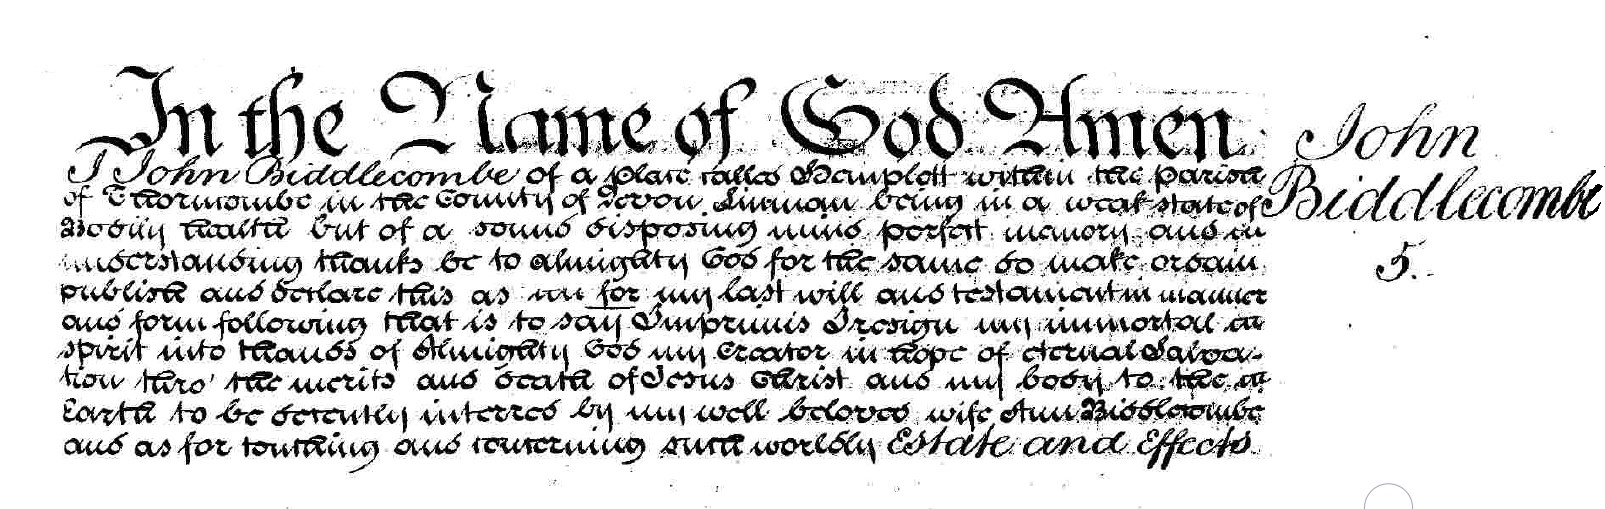 In the Name of God Amen
I John Biddlecombe of a place called within the Parish
of in the County of Devon being in a weak state of
Bodily health but of a sound disposing mind perfect memory and
understanding thanks be to almighty God for the same do make ordain
publish and declare this as for my last will and testament in manner
and form following that is to say Imprimis I resign my immortal
spirit into hands of Almighty God my Creator in hope of eternal Salva-
tion thro' the merits and death of Jesus Christ and my body to the
Earth to be decently interred by my well beloved wife Ann Biddlecombe
and as for touching and concerning such worldly Estate and Effects
John
Biddlecombe
5.